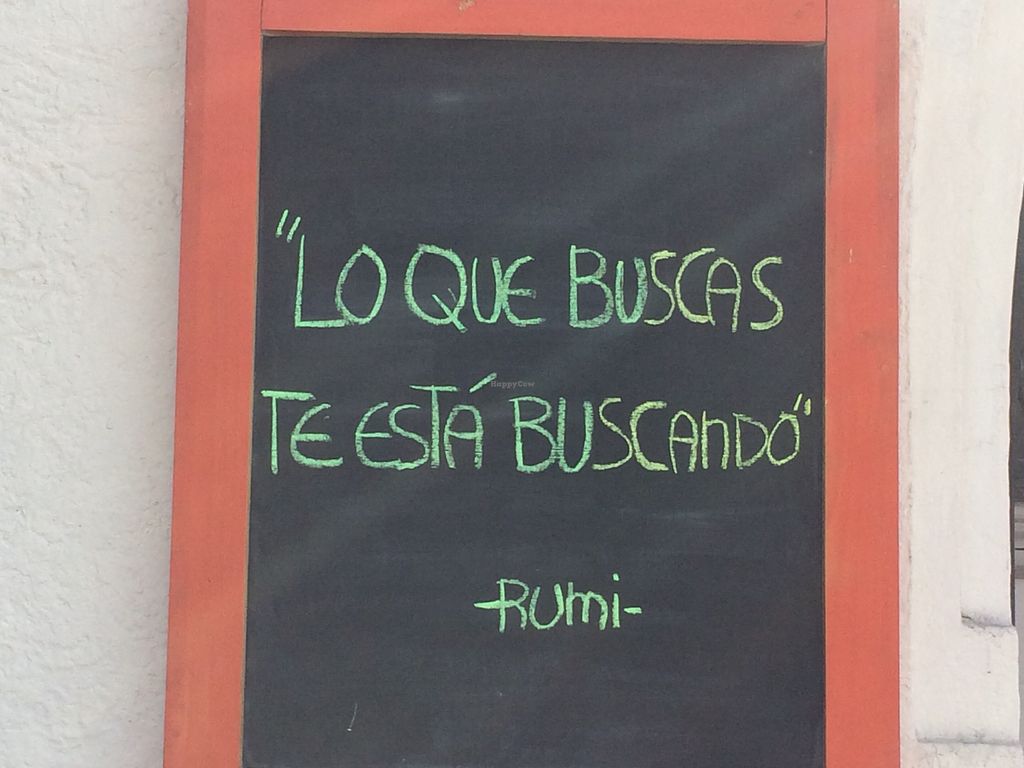 "LO QUE BUSCAS
HappyCow
TE ESTÁ BUSCANDO"
-RUMI-